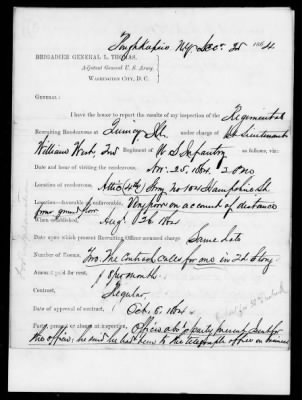 Poughkeepsie, N.Y. Dec. 25 1864
BRIGADIER GENERAL L. THOMAS,
Adjutant General U. S. Army,
WASHINGTON CITY, D. C.
GENERAL:
I have the honor to report the results of my inspection of the Regimental
Recruiting Rendezvous at Quincy Ills. under charge of 1st Lieutenant
William West, 2nd Regiment of U S Infantry as follows, viz:
Date and hour of visiting the rendezvous, Nov. 25, 1864. 2
Location of rendezvous, Attic (4th) Story No 104 Hampshire St
Location—favorable or unfavorable, Very poor on account of distance
from ground floor
When established, Aug 26 1864
Date upon which present Recruiting Officer assumed charge Same date
Number of Rooms, Two. The Contract calls for one in 2d Story.
Amount paid for rent, $8 per month.
Contract, Regular.
Date of approval of contract, Oct. 5. 1864
Party, present or absent at inspection, Officer & party present sent for
the officer; he said he had been to the telegraph office on business